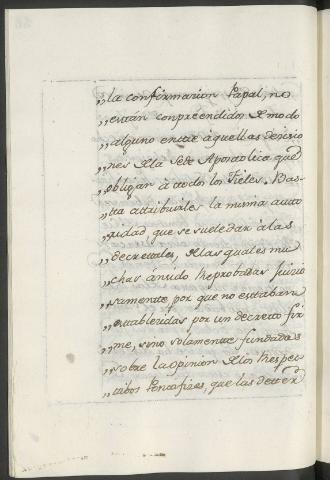 „la confirmacion Papal, no
„están conpreendidos de modo
„alguno entre aquellas decisio
„nes de la Sede Apostolica que
„obligan à todos los Fieles. Bas-
„ta atribuirles la misma auto
„ridad que se suele dar à las
„decretales, de las quales mu
„chas án sido rreprobadas justa
„mente, por que no estaban
„establecidas por un decreto fir
„me, sino solamente fundadas
„sobre la opinion de los rrespec
„tibos Pontifices, que las